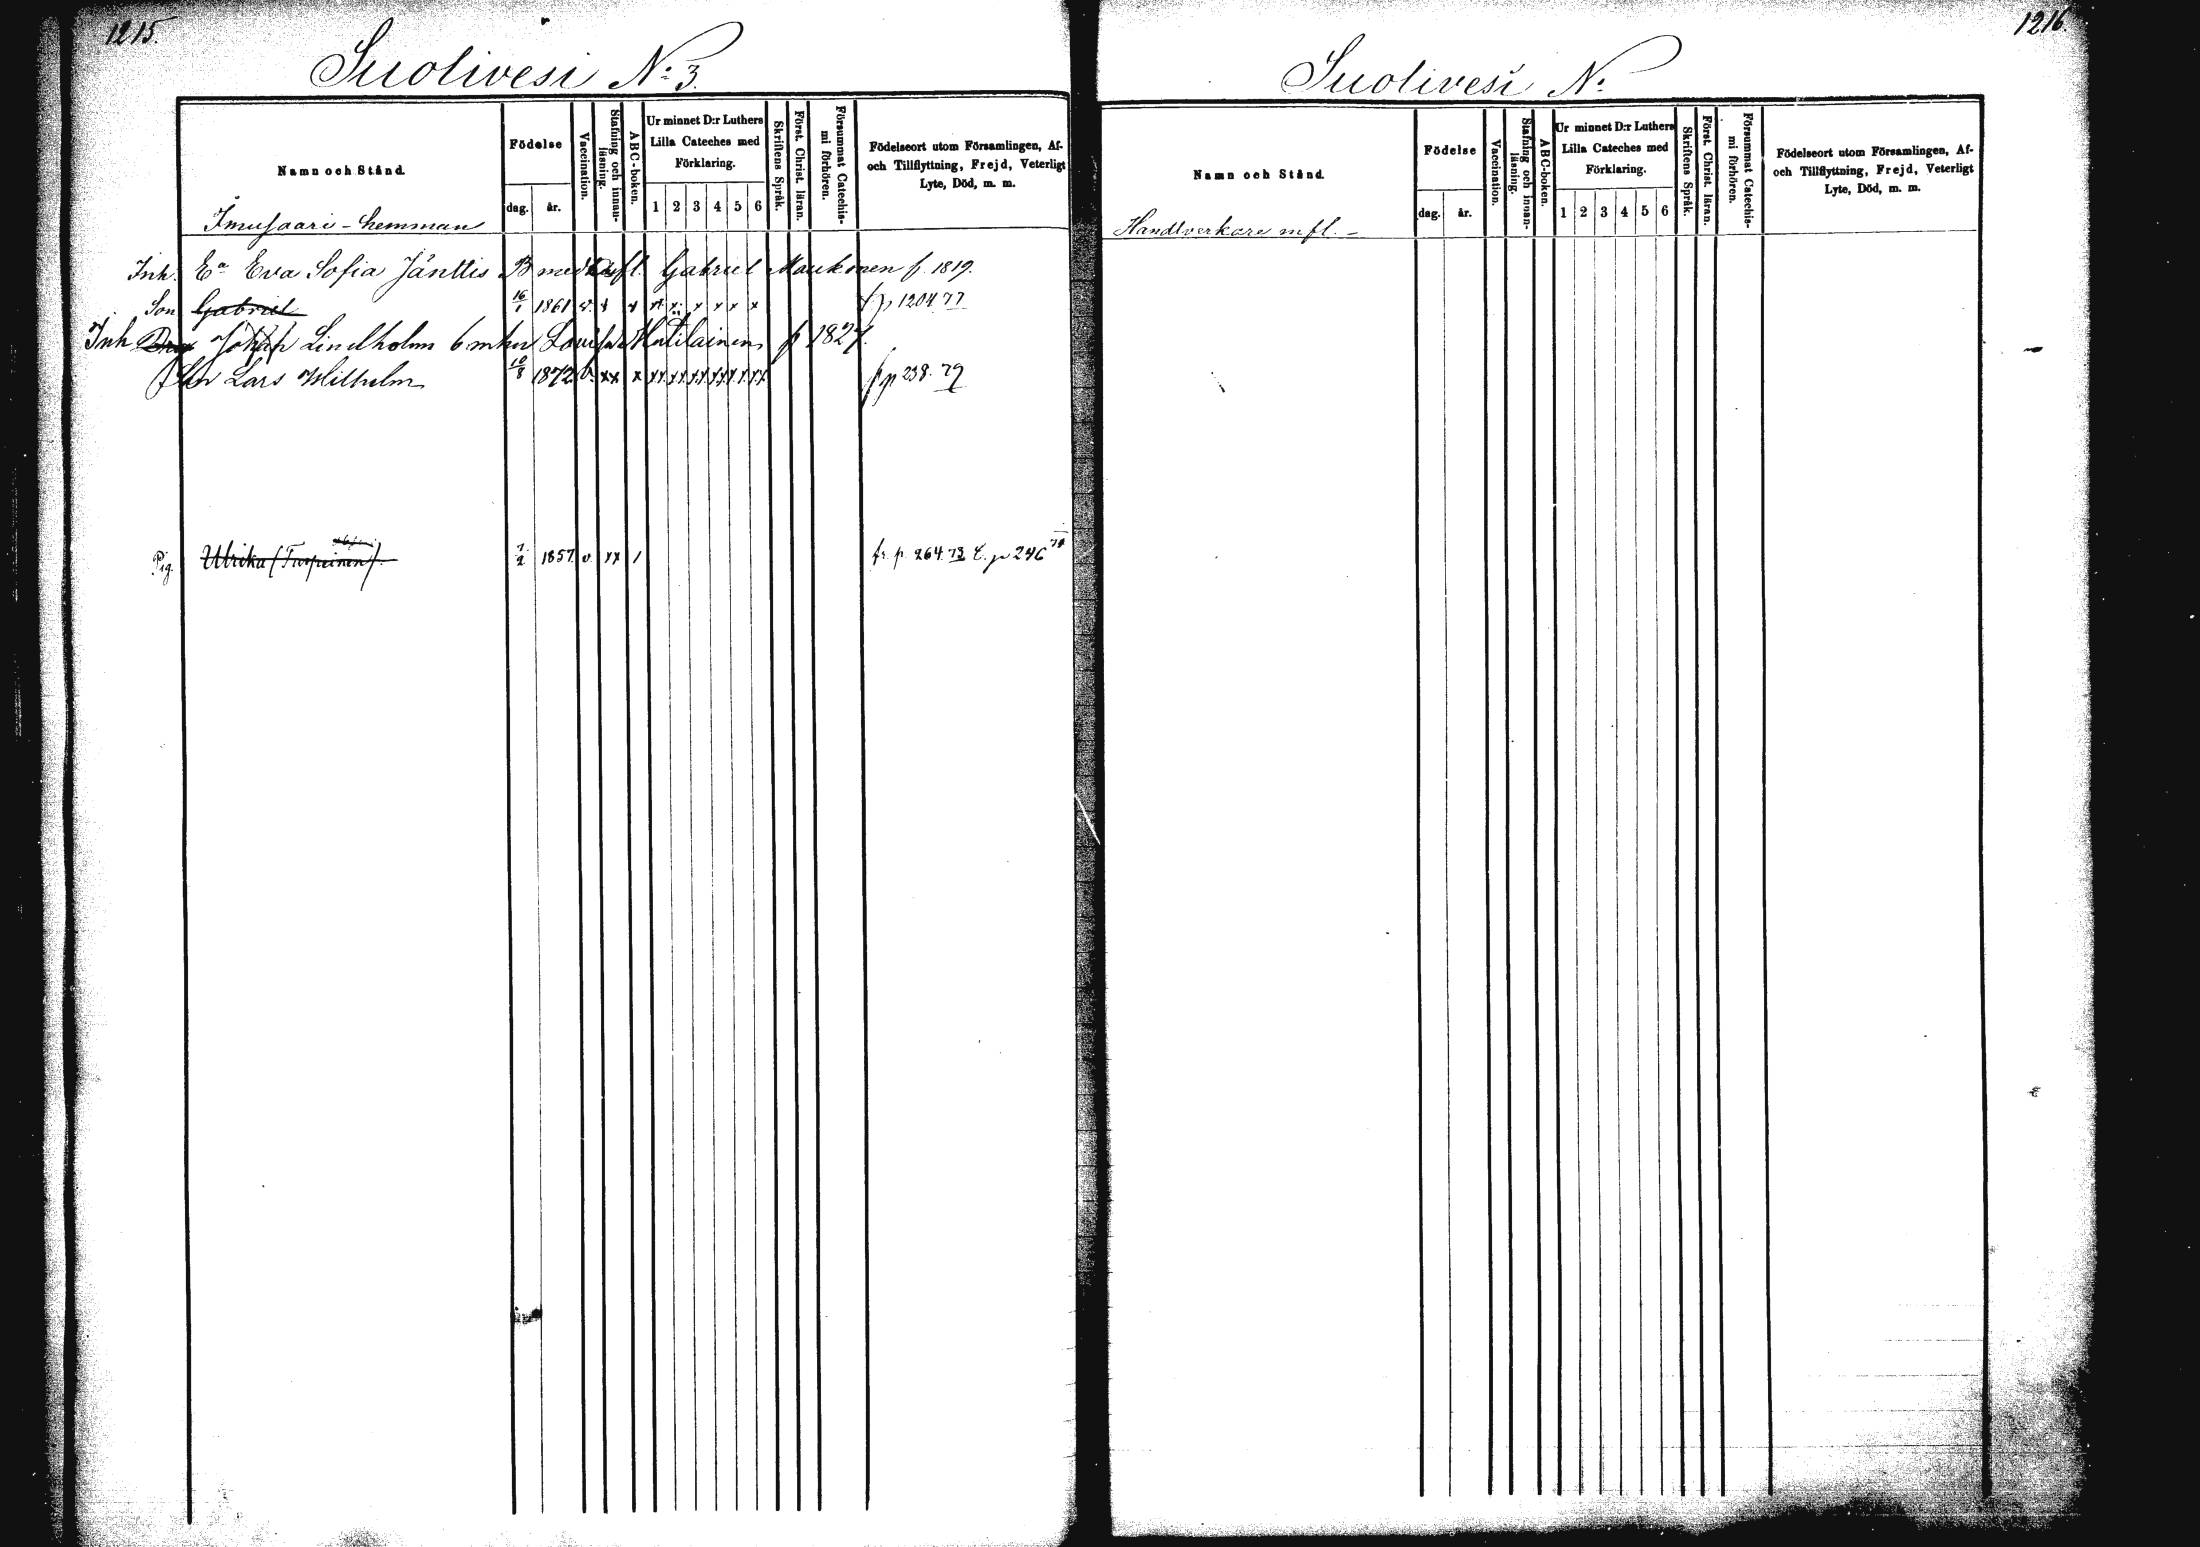 1215.
Suolivesi No: 3.
Namn och Stånd.
Födelse
dag. år.
Vaccination.
Stafning och innan-
läsning.
ABC-boken.
Ur minnet D:r Luthers
Lilla Cateches med
Förklaring.
1 2 3 4 5 6
Skriftens Språk.
Först. Christ. läran.
Försummat Catechis-
mi förhören.
Födelseort utom Församlingen, Af-
och Tillflyttning, Frejd, Veterligt
Lyte, Död, m. m.
Imusaari-hemman
Inh. Ea Eva Sofia Jänttis B med Gabriel Maukonen f. 1819.
Son Gabriel 16/1 1861 v. x x x x x x x x p 1204.77
Inh Johan Lindholm 6 m hu Lovisa Matilainen p 1827.
Son Lars Wilhelm 10/8 1872 v. xx x xx xx xx xx xx xx f p 238. 79
Pig. Ulrika (Taspeinen) 7/2 1857 v xx / fr. p. 264.73 t. p 246 74
1216.
Suolivesi No:
Namn och Stånd.
Födelse
dag. år.
Vaccination.
Stafning och innan-
läsning.
ABC-boken.
Ur minnet D:r Luthers
Lilla Cateches med
Förklaring.
1 2 3 4 5 6
Skriftens Språk.
Först. Christ. läran.
Försummat Catechis-
mi förhören.
Födelseort utom Församlingen, Af-
och Tillflyttning, Frejd, Veterligt
Lyte, Död, m. m.
Handtverkare mfl. -